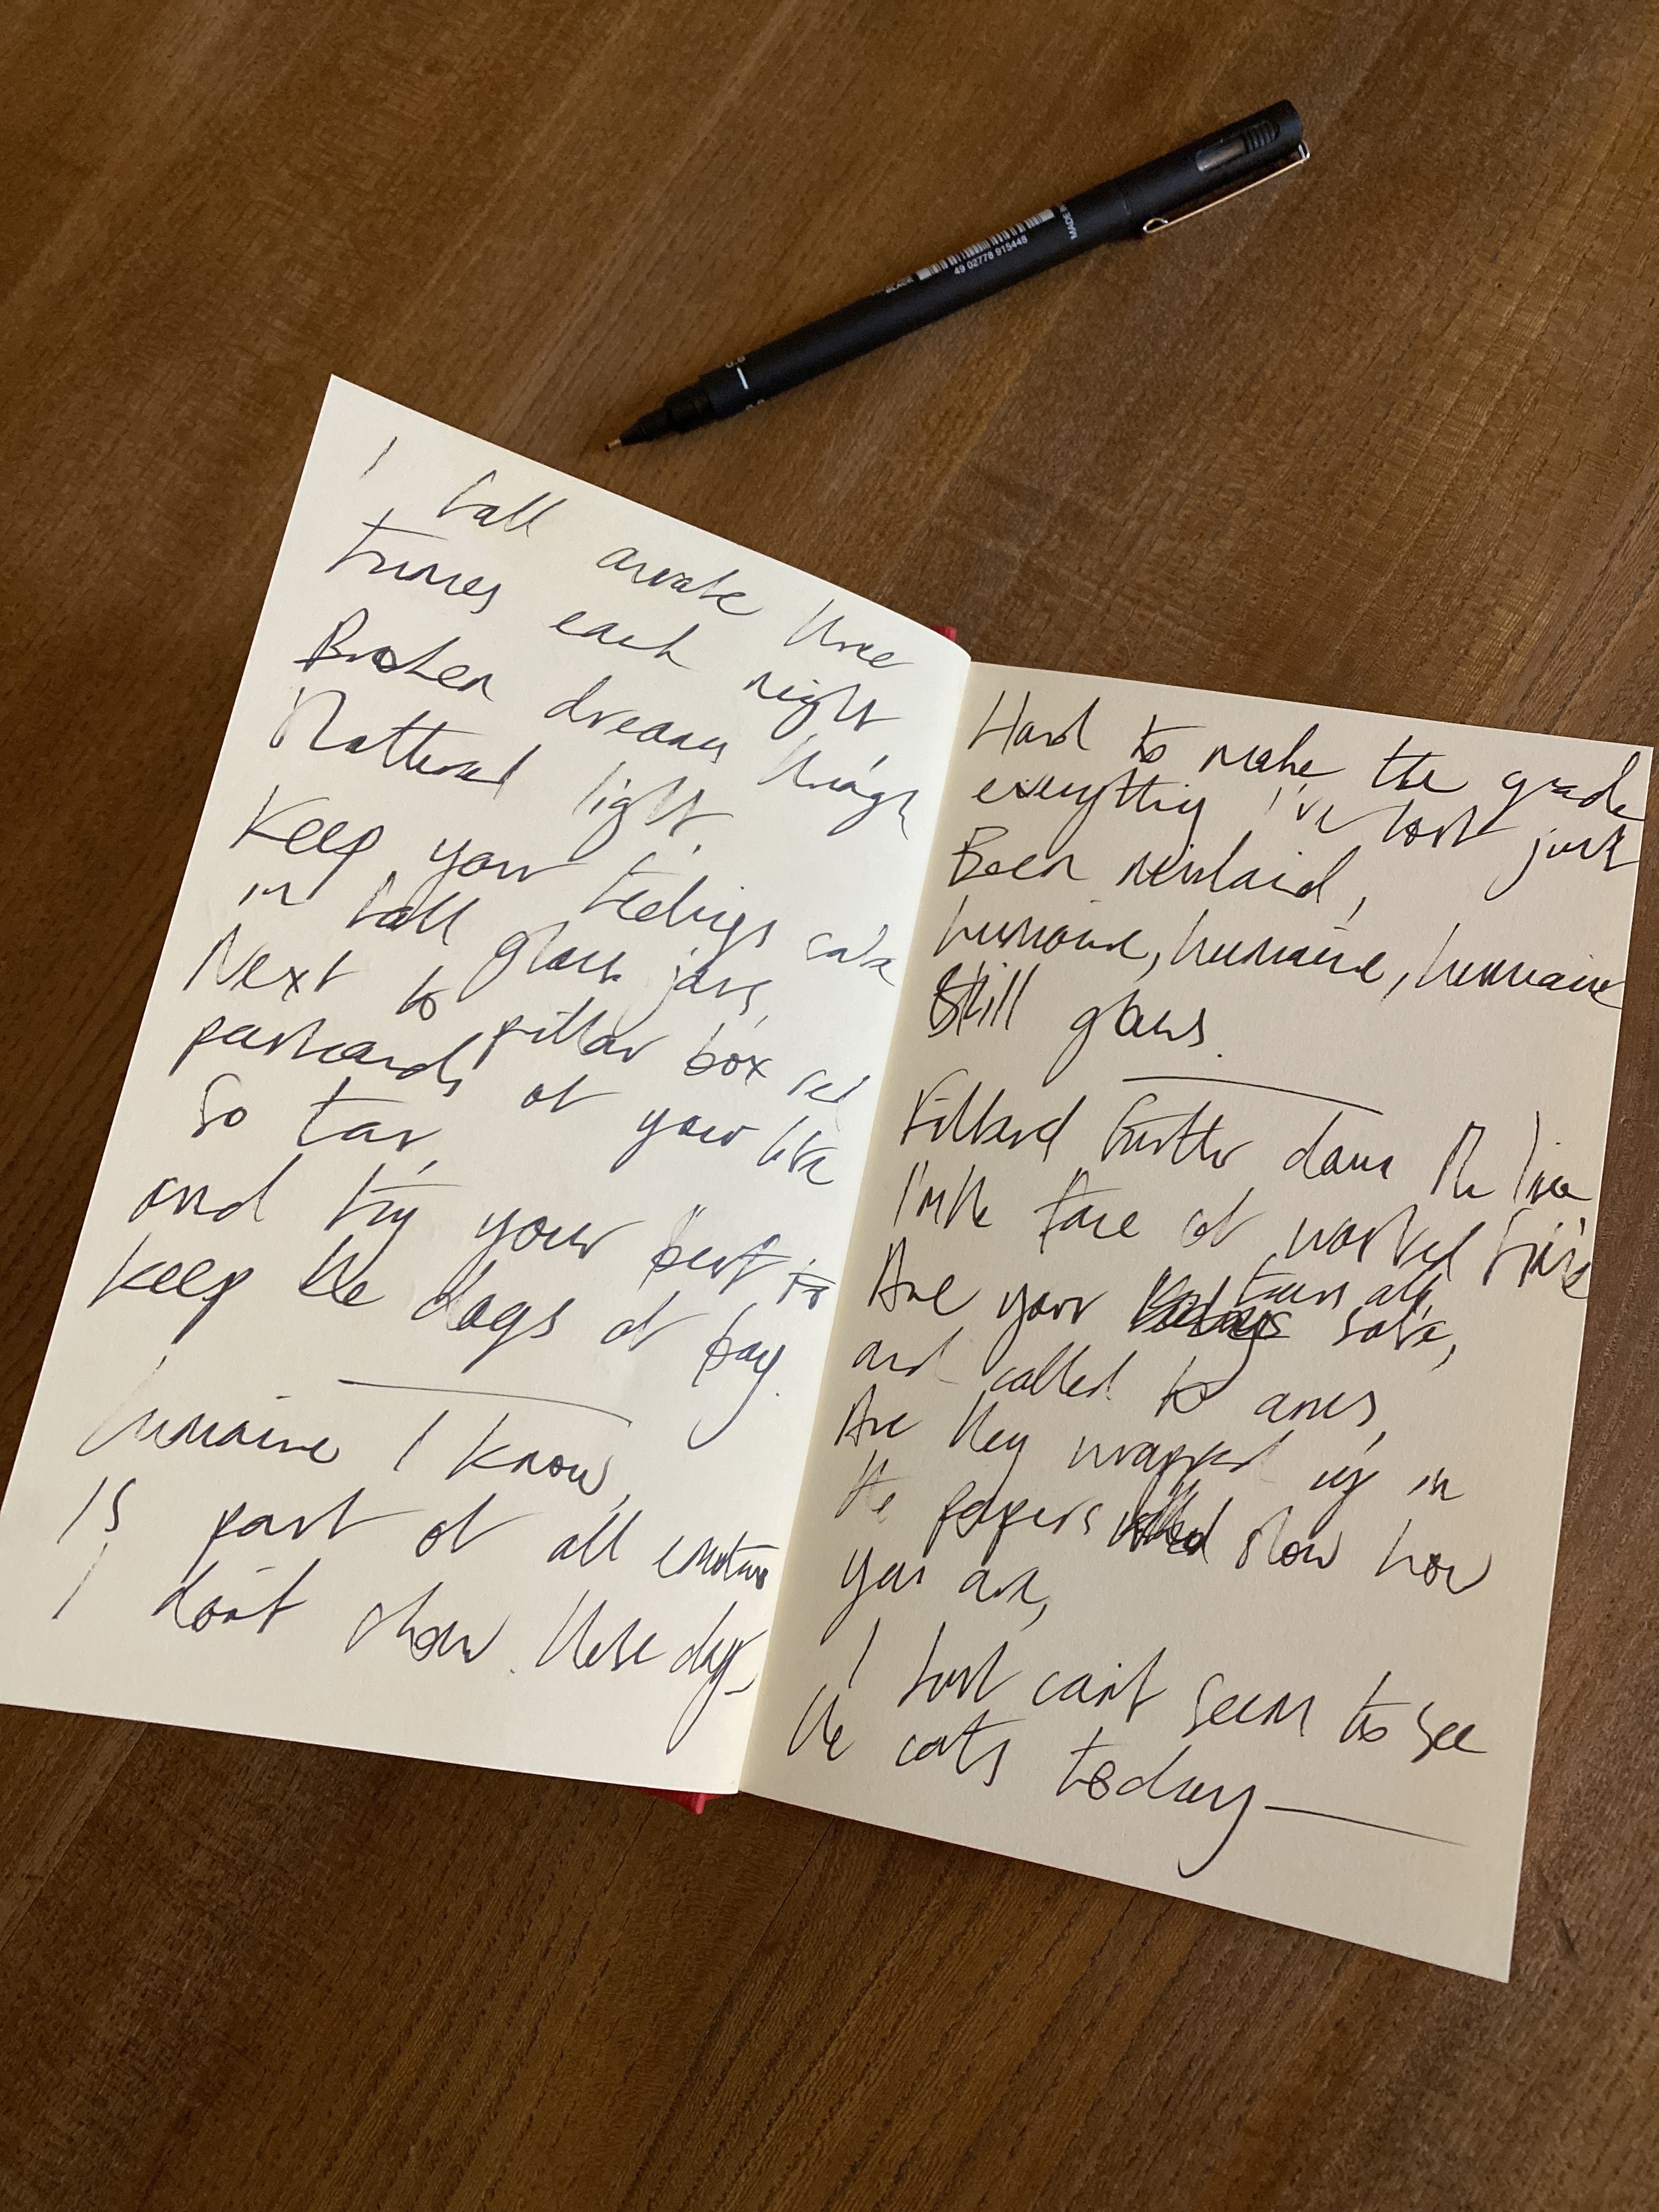 BLACK
49 02778 915448
MADE IN
0.8
I fall awake three
times each night
Broken dreams
light.
Keep your feelings safe
in tall glass jars,
Next to pillar box red
postcards of your life
So far,
and try your best to
keep the dogs at bay.
I know,
Is part of all
I don't show these days
Hard to make the grade
everything I've lost just
Been mislaid,
Still glows.
further down the line
I'm the face of
Are your tears all safe,
and called to arms,
Are they wrapped up in
the papers show how
you are,
I just can't seem to see
the cats today